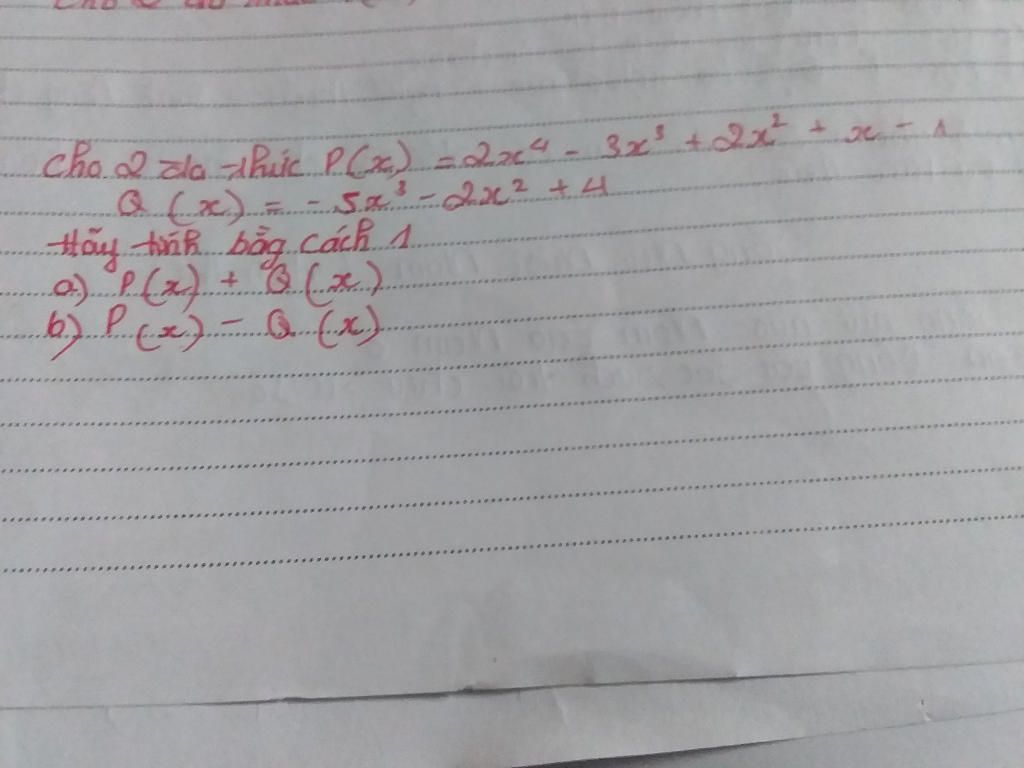 Cho 2 đa thức P(x) = 2x⁴ - 3x³ + 2x² + x - 1
Q(x) = - 5x³ - 2x² + 4
Hãy tính bằng cách 1
a) P(x) + Q(x)
b) P(x) - Q(x)